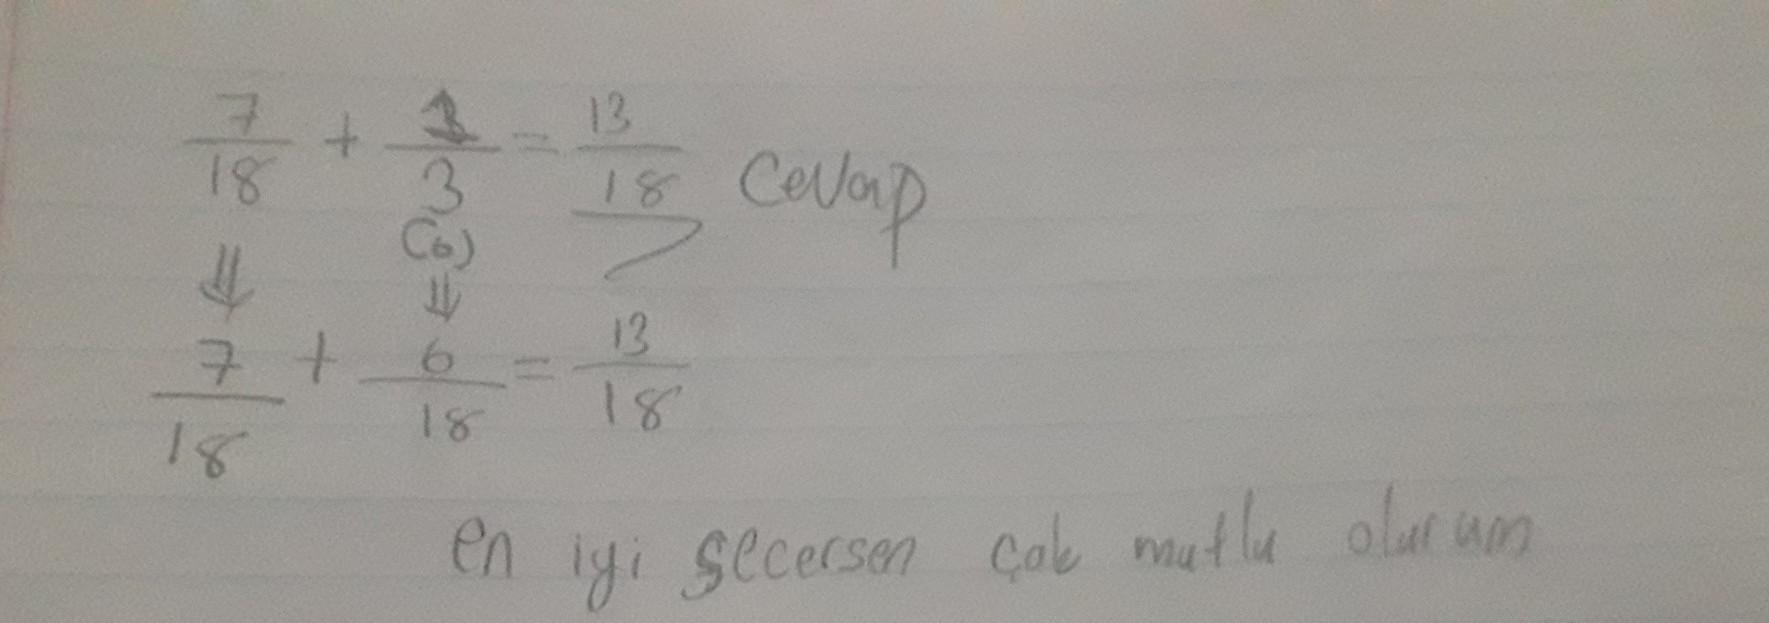 7/18 + 1/3 = 13/18 Cevap
(6)
⇓ ⇓
7/18 + 6/18 = 13/18
en iyi seçersen çok mutlu olurum